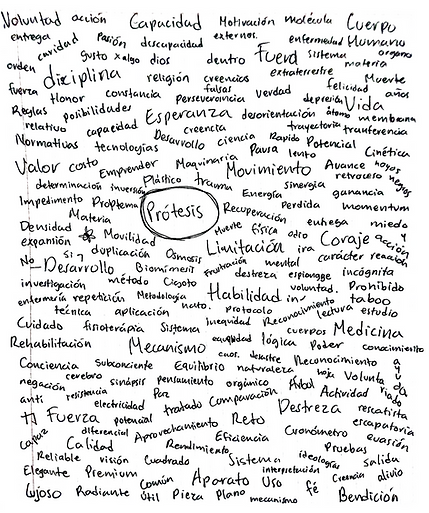 Voluntad acción Capacidad Motivación molécula Cuerpo
entrega Pasión discapacidad externos. enfermedad Humano
caridad gusto x algo dios dentro Fuera sistema organo
orden disciplina religión creencias extraterrestre materia Muerte
fuerza Honor constancia falsas verdad felicidad años
Perseverancia depresión Vida
Reglas posibilidades Esperanza desorientación átomo membrana
relativo capacidad creencia trayectoria tranferencia
Normativas tecnologías Desarrollo ciencia Rapido Potencial Cinética
Valor costo Emprender Maquinaria Pausa lento Avance hoyos
Movimiento retroceso negros
determinación inversión Plástico trauma sinergia ganancia
Impedimento Problema Prótesis Energía
Materia Recuperación Perdida momentum
Densidad Movilidad Muerte Física odio miedo
expansión Limitación ira Coraje acción
No Si duplicación Osmosis y reacción
Desarrollo Biomimesis Frustración mental carácter
investigación método destreza espionage incógnita
enfermería repetición Metodología Habilidad voluntad. Prohibido
técnica aplicación protocolo lectura taboo
Cuidado fisioterapia Sistema inequidad Reconocimiento estudio
Rehabilitación Mecanismo equidad lógica cuerpos Medicina
Poder conocimiento
Conciencia Subconciente Equilibrio caos. desastre Reconocimiento
negación cerebro sinápsis pensamiento naturaleza hoja Voluntad
anti resistencia Paz orgánico Árbol Actividad
electricidad tratado Comparación Destreza rescatista
Fuerza potencial escapatoria
capaz diferencial Aprovechamiento Reto Cronómetro evasión
Calidad Rendimiento Eficiencia Pruebas
Reliable visión Cuadrado Sistema ideologías salida
Elegante Premium interpretación Creencia alivio
Lujoso Radiante común Aparato Uso fé
útil Pieza Plano mecanismo Bendición